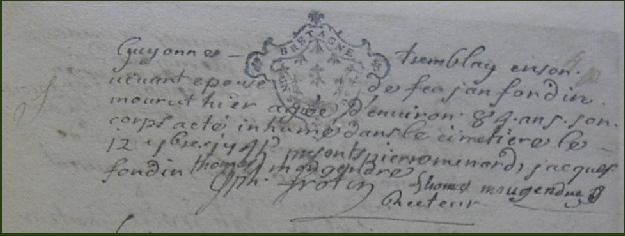 Guyonne BRETAGNE tremblay en son
vivant epouse de feu jan fondin
mourut hier agee d'environ 84 ans son
corps a eté inhumé dans le cimetiere le
12 presents pierre menard, jacques
fondin thomas maugendre
ph. frotin thomas maugendre
Recteur